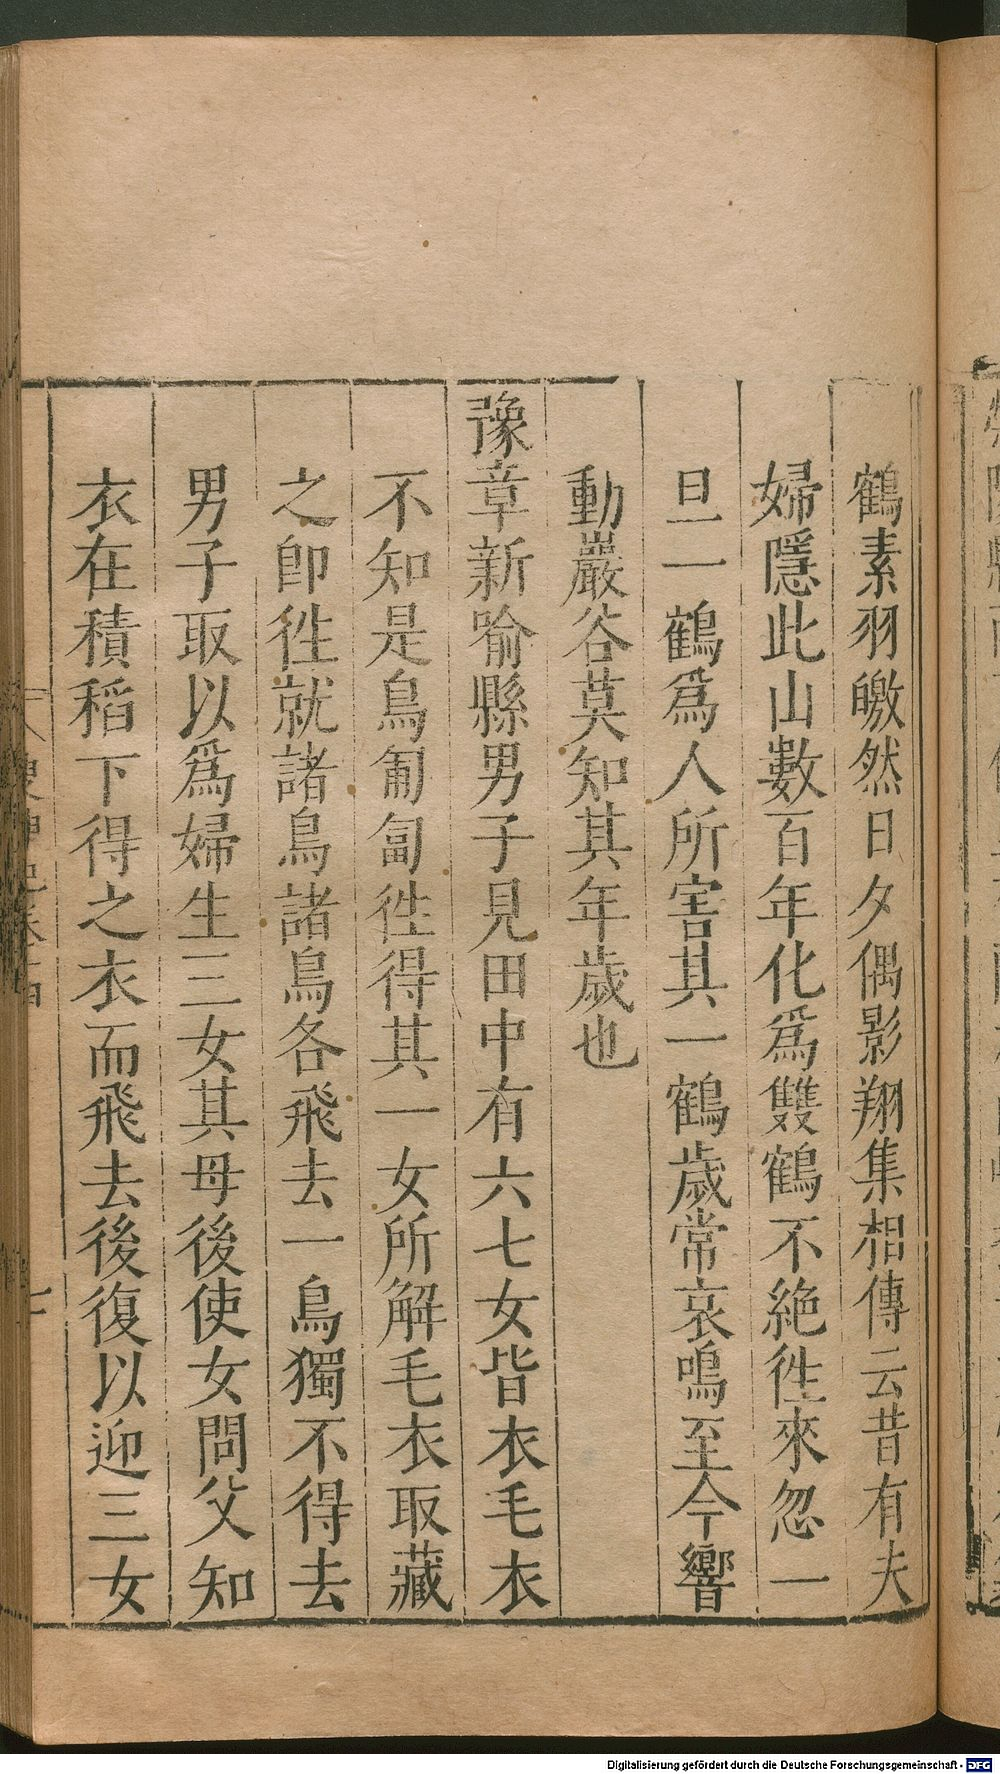 鶴素羽皦然日夕偶影翔集相傳云昔有夫
婦隱此山數百年化爲雙鶴不絶徃來忽一
旦一鶴爲人所害其一鶴歲常哀鳴至今響
動巖谷莫知其年歲也
豫章新喻縣男子見田中有六七女皆衣毛衣
不知是鳥匍匐徃得其一女所解毛衣取藏
之卽徃就諸鳥諸鳥各飛去一鳥獨不得去
男子取以爲婦生三女其母後使女問父知
衣在積稻下得之衣而飛去後復以迎三女
Digitalisierung gefördert durch die Deutsche Forschungsgemeinschaft - DFG